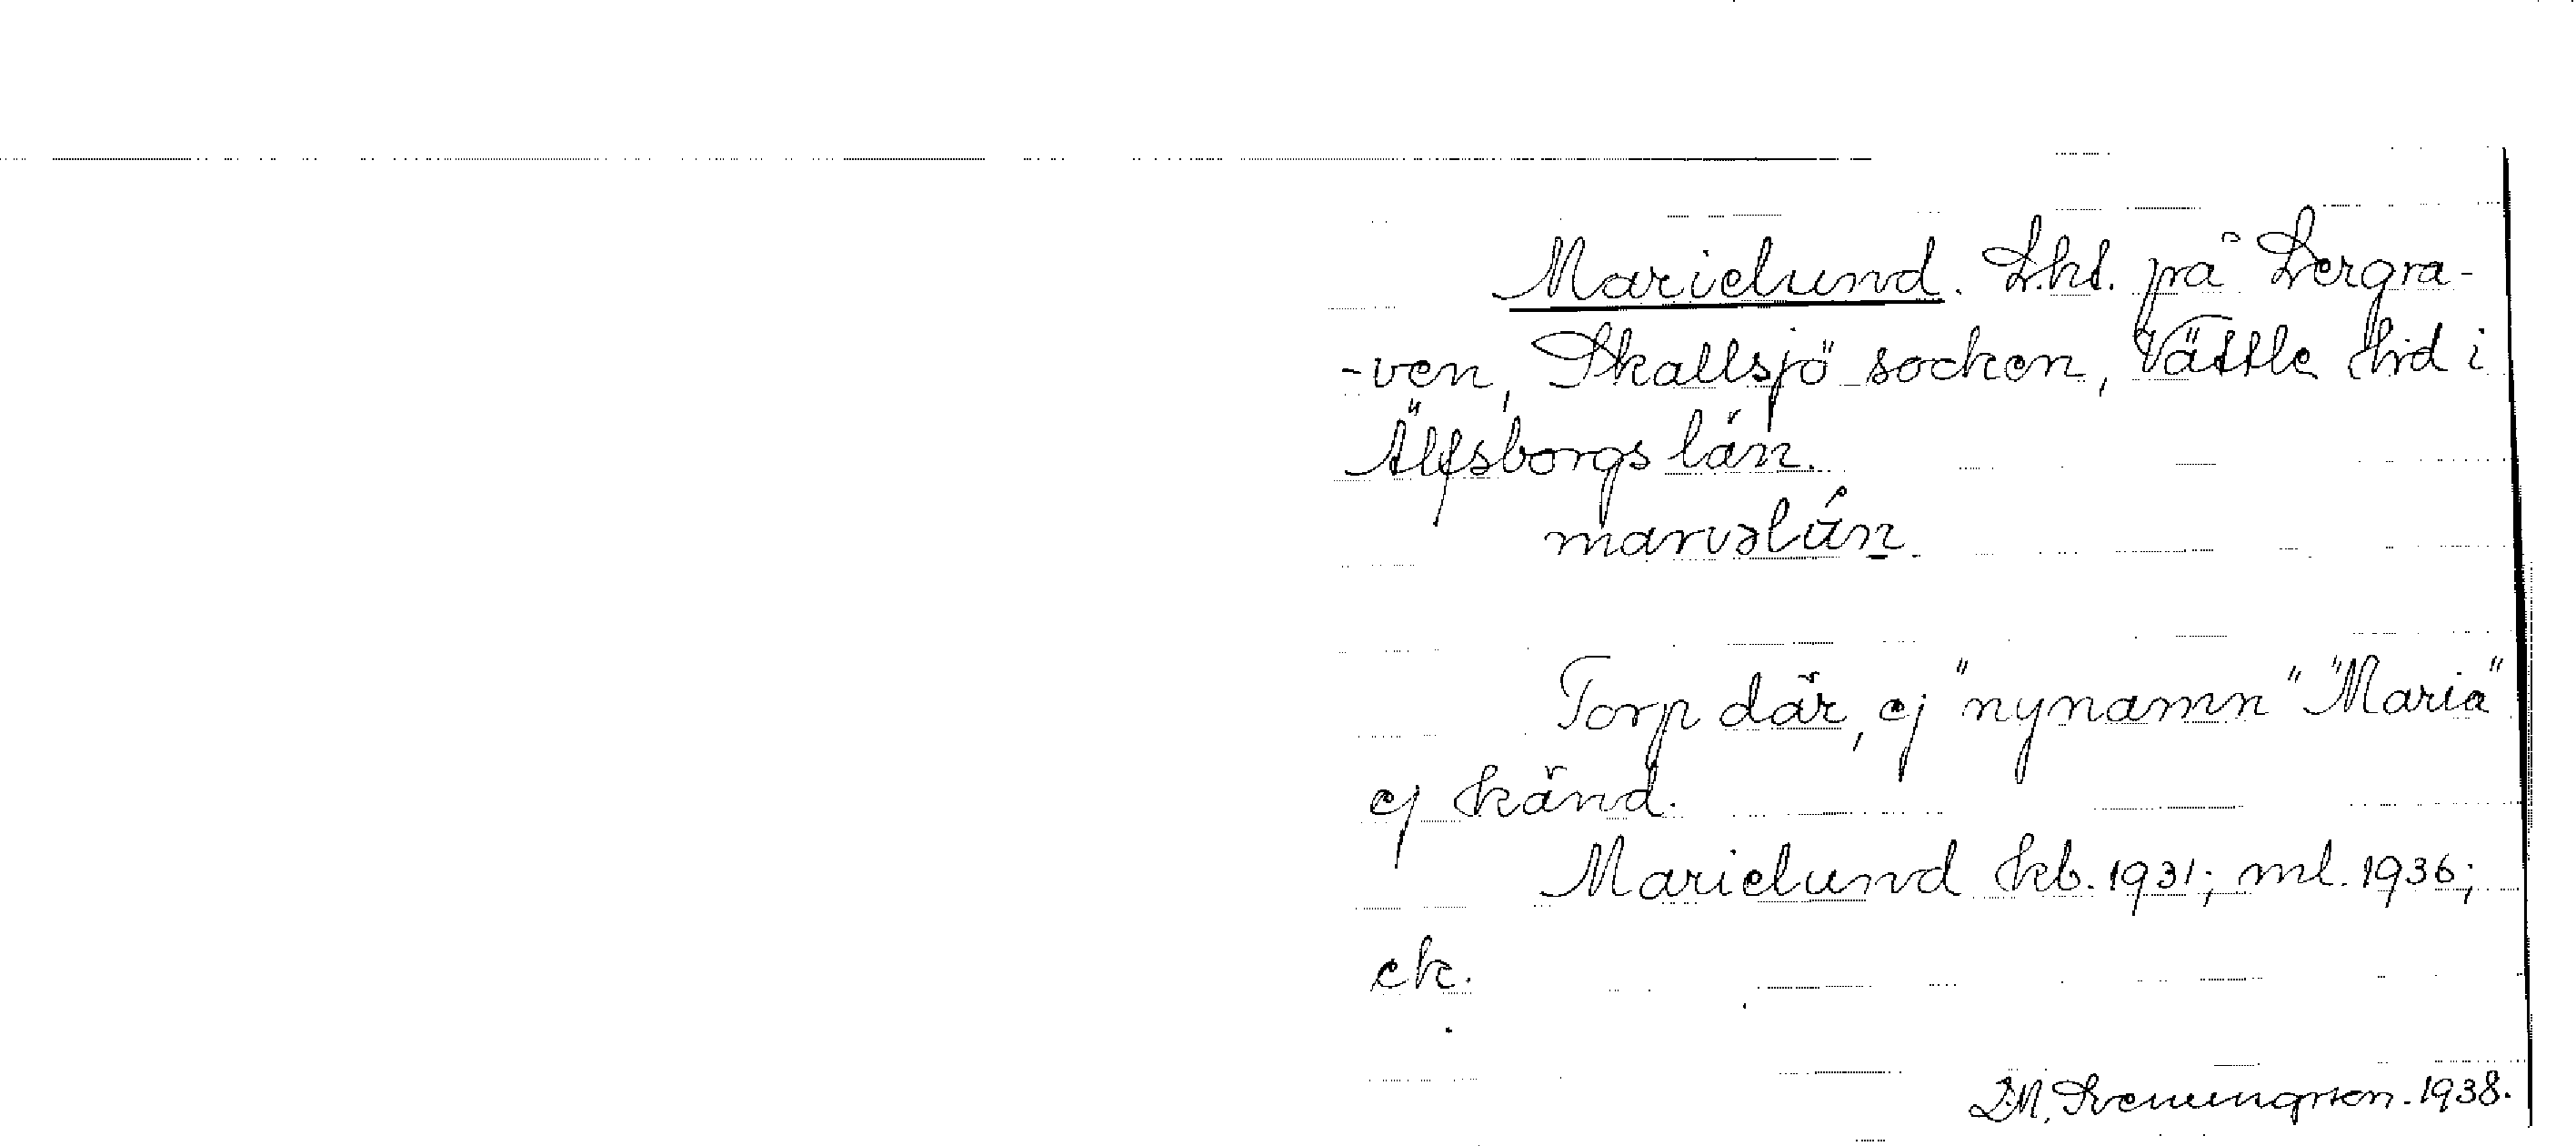 Marielund. Lht. på Lergra-
-ven, Skallsjö socken, Vättle hd i
Älfsborgs län.
marɩəlún
Torp där, ej "nynamn" "Maria"
ej känd.
Marielund kb. 1931; ml. 1936;
ek.
D.M. Sveningson. 1938.